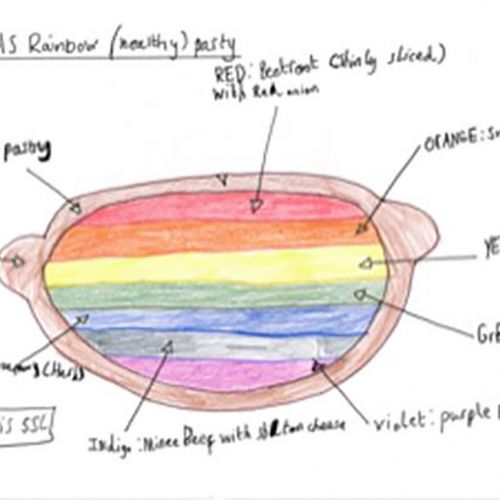 Rainbow (healthy) pasty
RED: Beetroot (thinly sliced)
with Red onion
pastry
ORANGE:
YE
GrE
Indigo: Mince Beef with stilton cheese
violet: purple